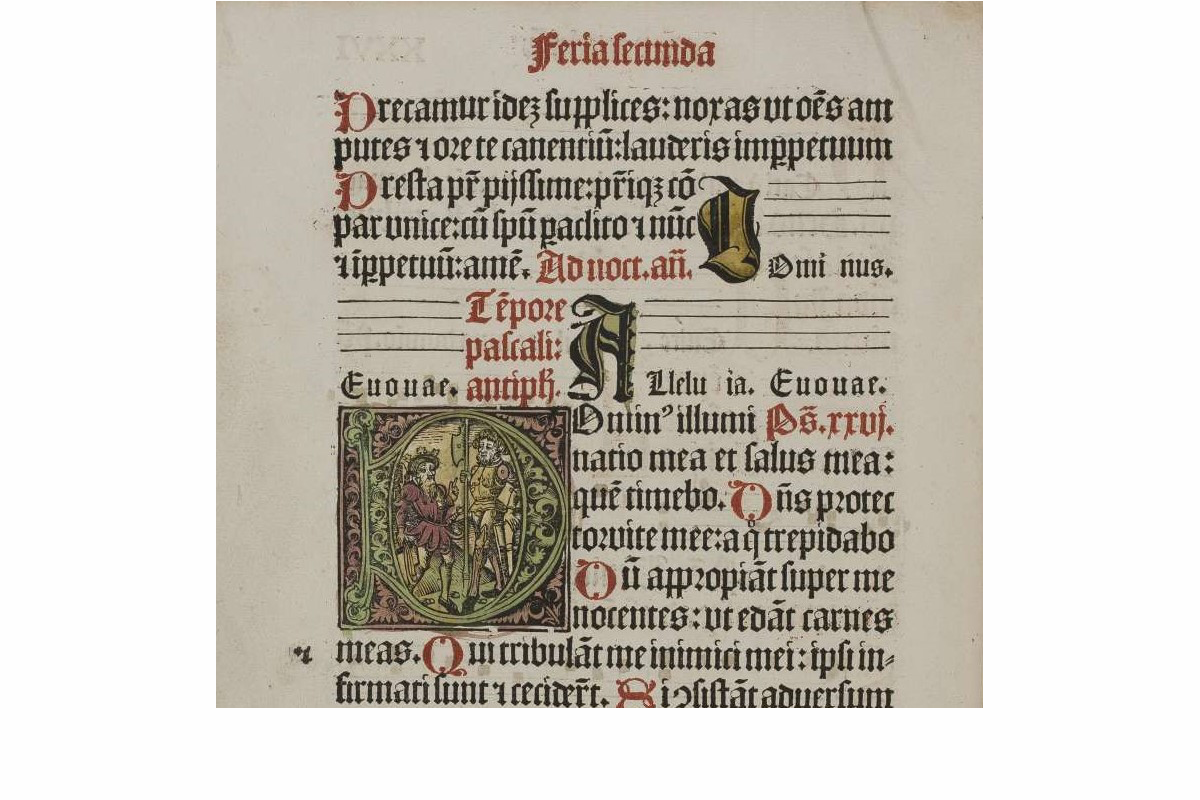 Feria secunda
Precamur idez supplices: noxas ut oēs am
putes ⁊ ore te canentiū: lauderis imꝑpetuum
Presta pr̄ pijssime: pr̄iqꝫ cō
par vnice: cū spū ꝑaclito ⁊ nūc
⁊ iꝑpetuū: amē. Ad noct. añ.
Domi nus.
Tēpore
pascali:
Euouae. antiph. Allelu ia. Euouae.
Dominꝰ illumi Ps̄. xxvj.
natio mea et salus mea:
quē timebo. Dn̄s protec
tor vite mee: a q̊ trepidabo
Dū appropiāt super me
nocentes: vt edāt carnes
meas. Qui tribulāt me inimici mei: ipsi in⸗
firmati sunt ⁊ cecider̄t. Si ↄsistāt aduersum